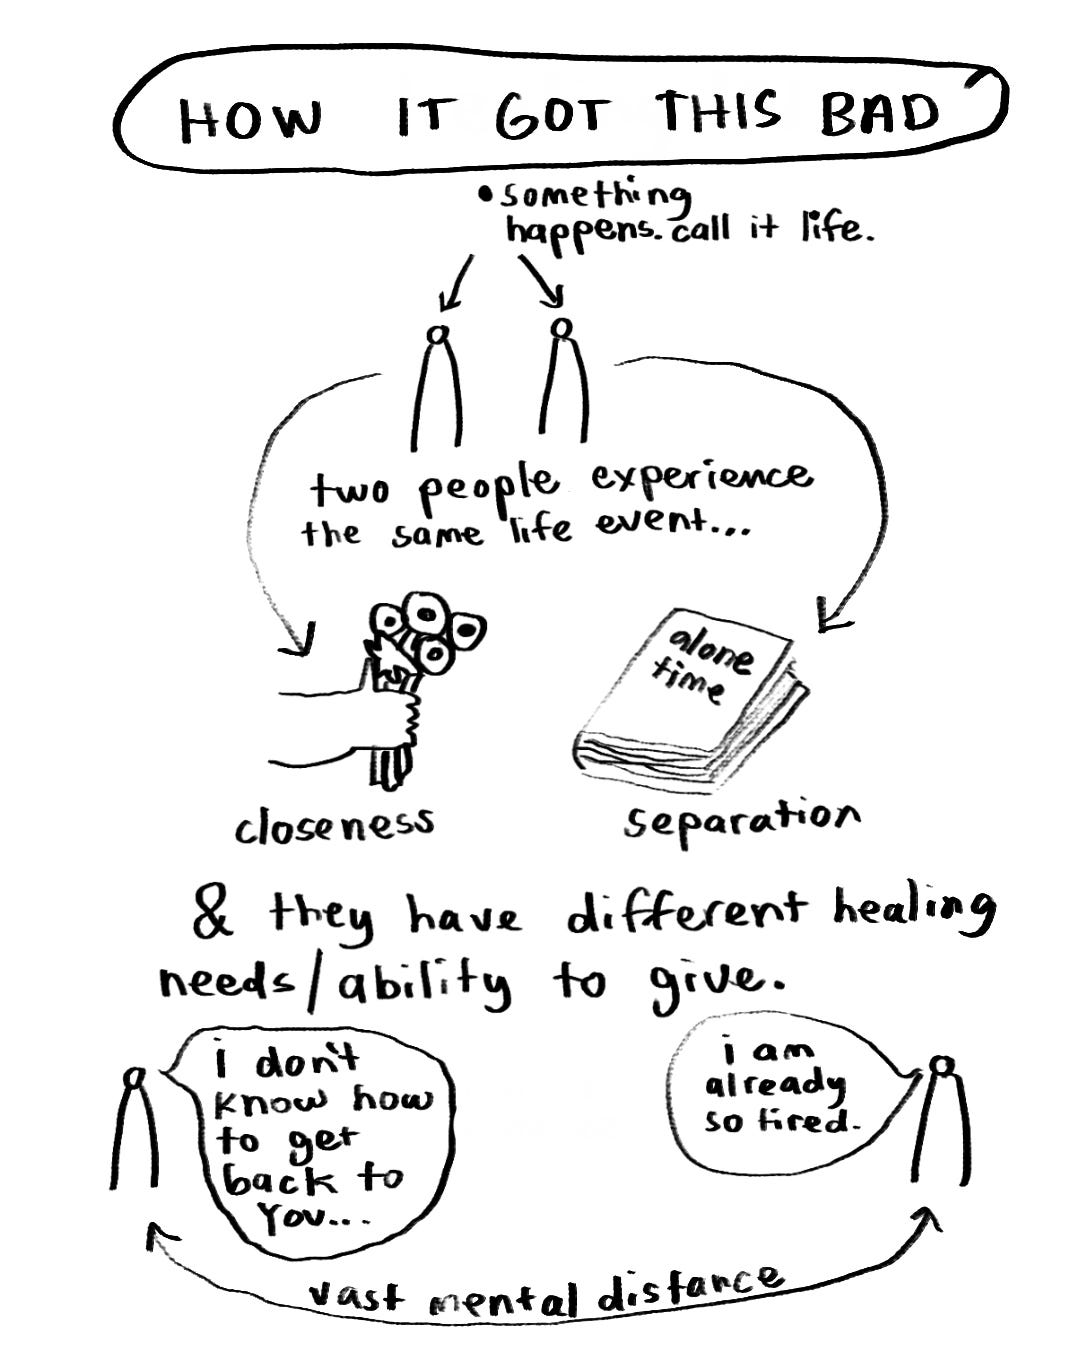 HOW IT GOT THIS BAD
• something
happens. call it life.
two people experience
the same life event...
alone
time
closeness
separation
& they have different healing
needs/ability to give.
i don't
know how
to get
back to
you...
i am
already
so tired.
vast mental distance